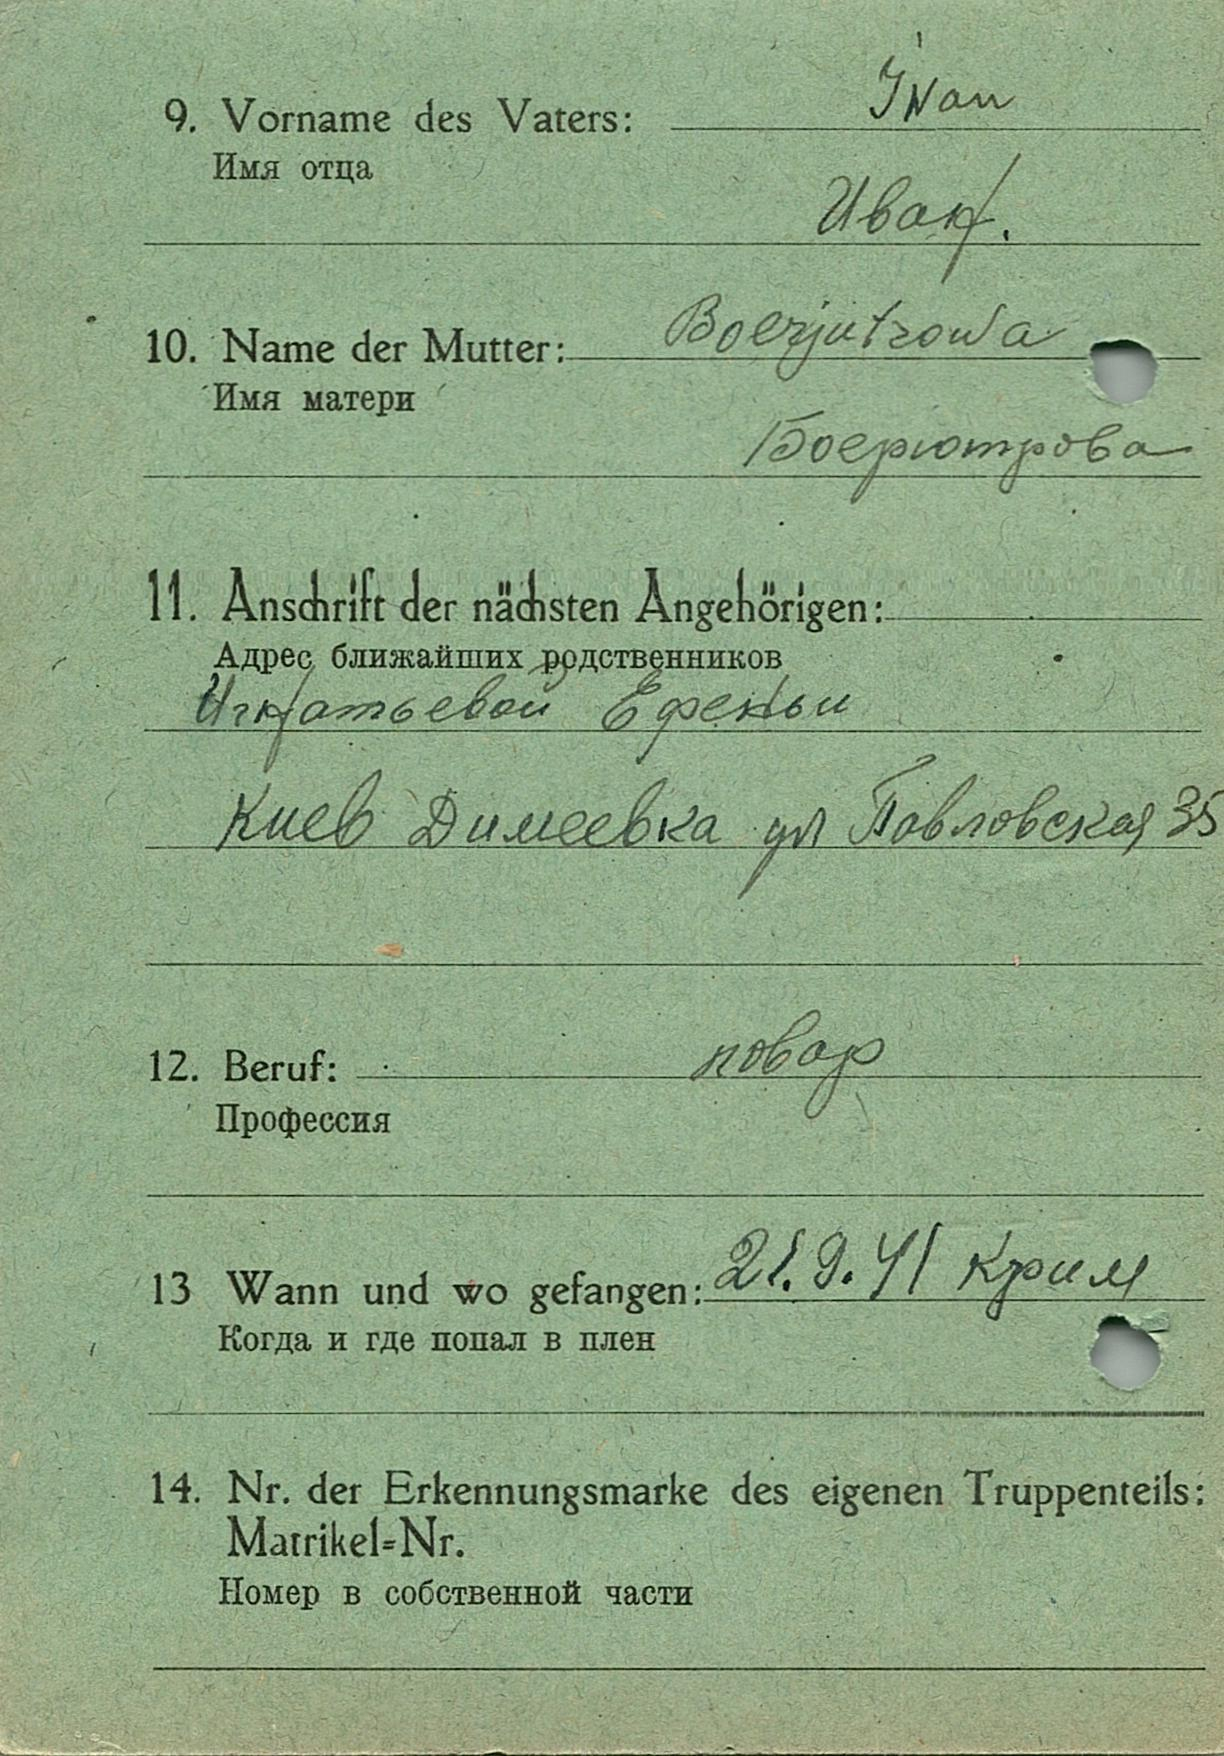 9. Vorname des Vaters: Iwan
Имя отца
Иван.
10. Name der Mutter: Boerjutrowa
Имя матери
Боерютрова
11. Anschrift der nächsten Angehörigen:
Адрес ближайших родственников
Игнатьевой Ефеньи
Киев Димеевка ул Павловская 35
12. Beruf: повар
Профессия
13 Wann und wo gefangen: 21.9.41 Крим
Когда и где попал в плен
14. Nr. der Erkennungsmarke des eigenen Truppenteils:
Matrikel=Nr.
Номер в собственной части